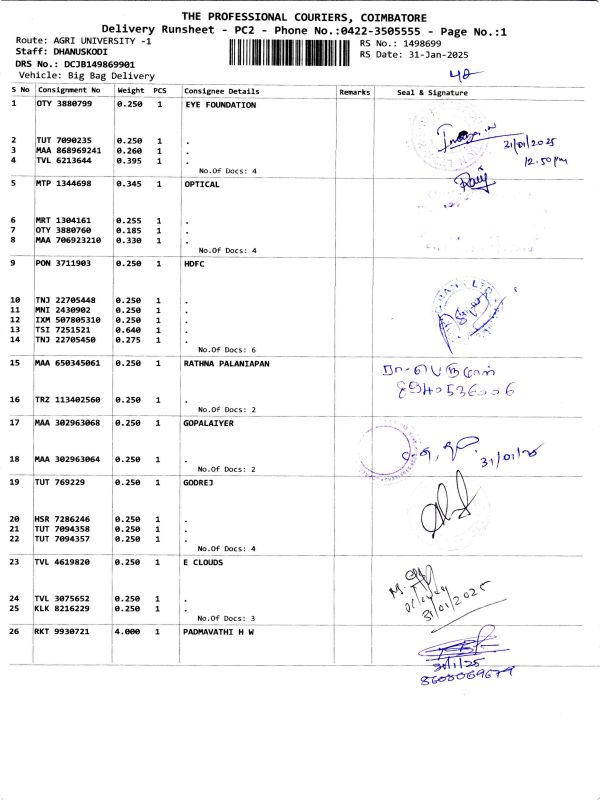 THE PROFESSIONAL COURIERS, COIMBATORE
Delivery Runsheet - PC2 - Phone No.:0422-3505555 - Page No.:1
Route: AGRI UNIVERSITY -1 RS No.: 1498699
Staff: DHANUSKODI RS Date: 31-Jan-2025
DRS No.: DCJB149869901
Vehicle: Big Bag Delivery 48
S No Consignment No Weight PCS Consignee Details Remarks Seal & Signature
1 OTY 3880799 0.250 1 EYE FOUNDATION
2 TUT 7090235 0.250 1 . 31/01/2025
3 MAA 868969241 0.260 1 .
4 TVL 6213644 0.395 1 . 12.50pm
No.Of Docs: 4
5 MTP 1344698 0.345 1 OPTICAL
6 MRT 1304161 0.255 1 .
7 OTY 3880760 0.185 1 .
8 MAA 706923210 0.330 1 .
No.Of Docs: 4
9 PON 3711903 0.250 1 HDFC
10 TNJ 22705448 0.250 1 .
11 MNI 2430902 0.250 1 .
12 IXM 507805310 0.250 1 .
13 TSI 7251521 0.640 1 .
14 TNJ 22705450 0.275 1 .
No.Of Docs: 6
15 MAA 650345061 0.250 1 RATHNA PALANIAPAN
16 TRZ 113402560 0.250 1 .
No.Of Docs: 2
17 MAA 302963068 0.250 1 GOPALAIYER
18 MAA 302963064 0.250 1 . 31/01/25
No.Of Docs: 2
19 TUT 769229 0.250 1 GODREJ
20 HSR 7286246 0.250 1 .
21 TUT 7094358 0.250 1 .
22 TUT 7094357 0.250 1 .
No.Of Docs: 4
23 TVL 4619820 0.250 1 E CLOUDS
24 TVL 3075652 0.250 1 .
25 KLK 8216229 0.250 1 . 31/01/2025
No.Of Docs: 3
26 RKT 9930721 4.000 1 PADMAVATHI H W
31/1/25
8608069679